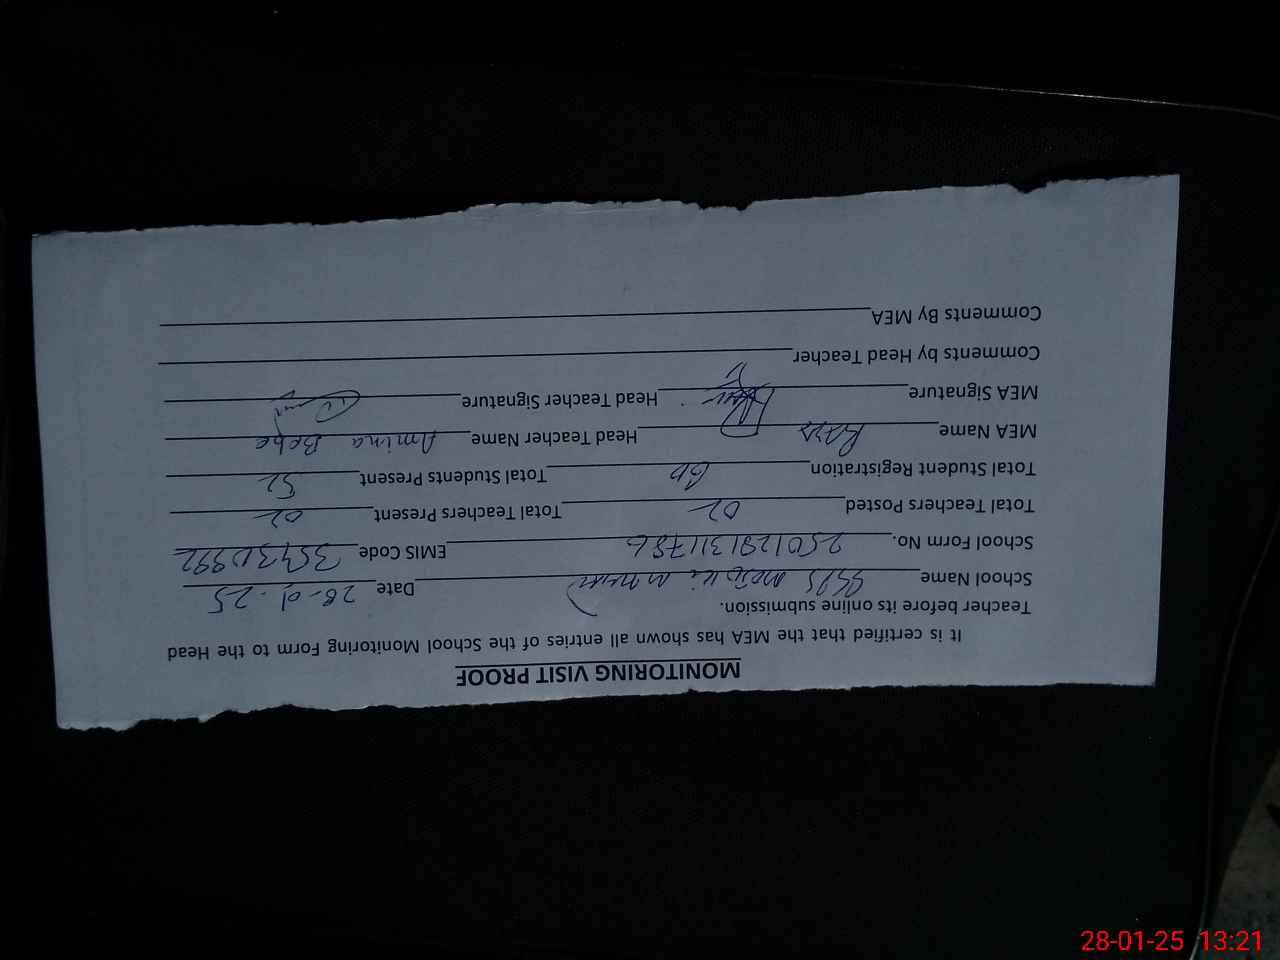 MONITORING VISIT PROOF
It is certified that the MEA has shown all entries of the School Monitoring Form to the Head
Teacher before its online submission.
School Name GGPS Date 28-01-25
School Form No. EMIS Code
Total Teachers Posted 02 Total Teachers Present 02
Total Student Registration 60 Total Students Present 52
MEA Name Head Teacher Name Amina
MEA Signature Head Teacher Signature
Comments by Head Teacher
Comments By MEA
28-01-25 13:21